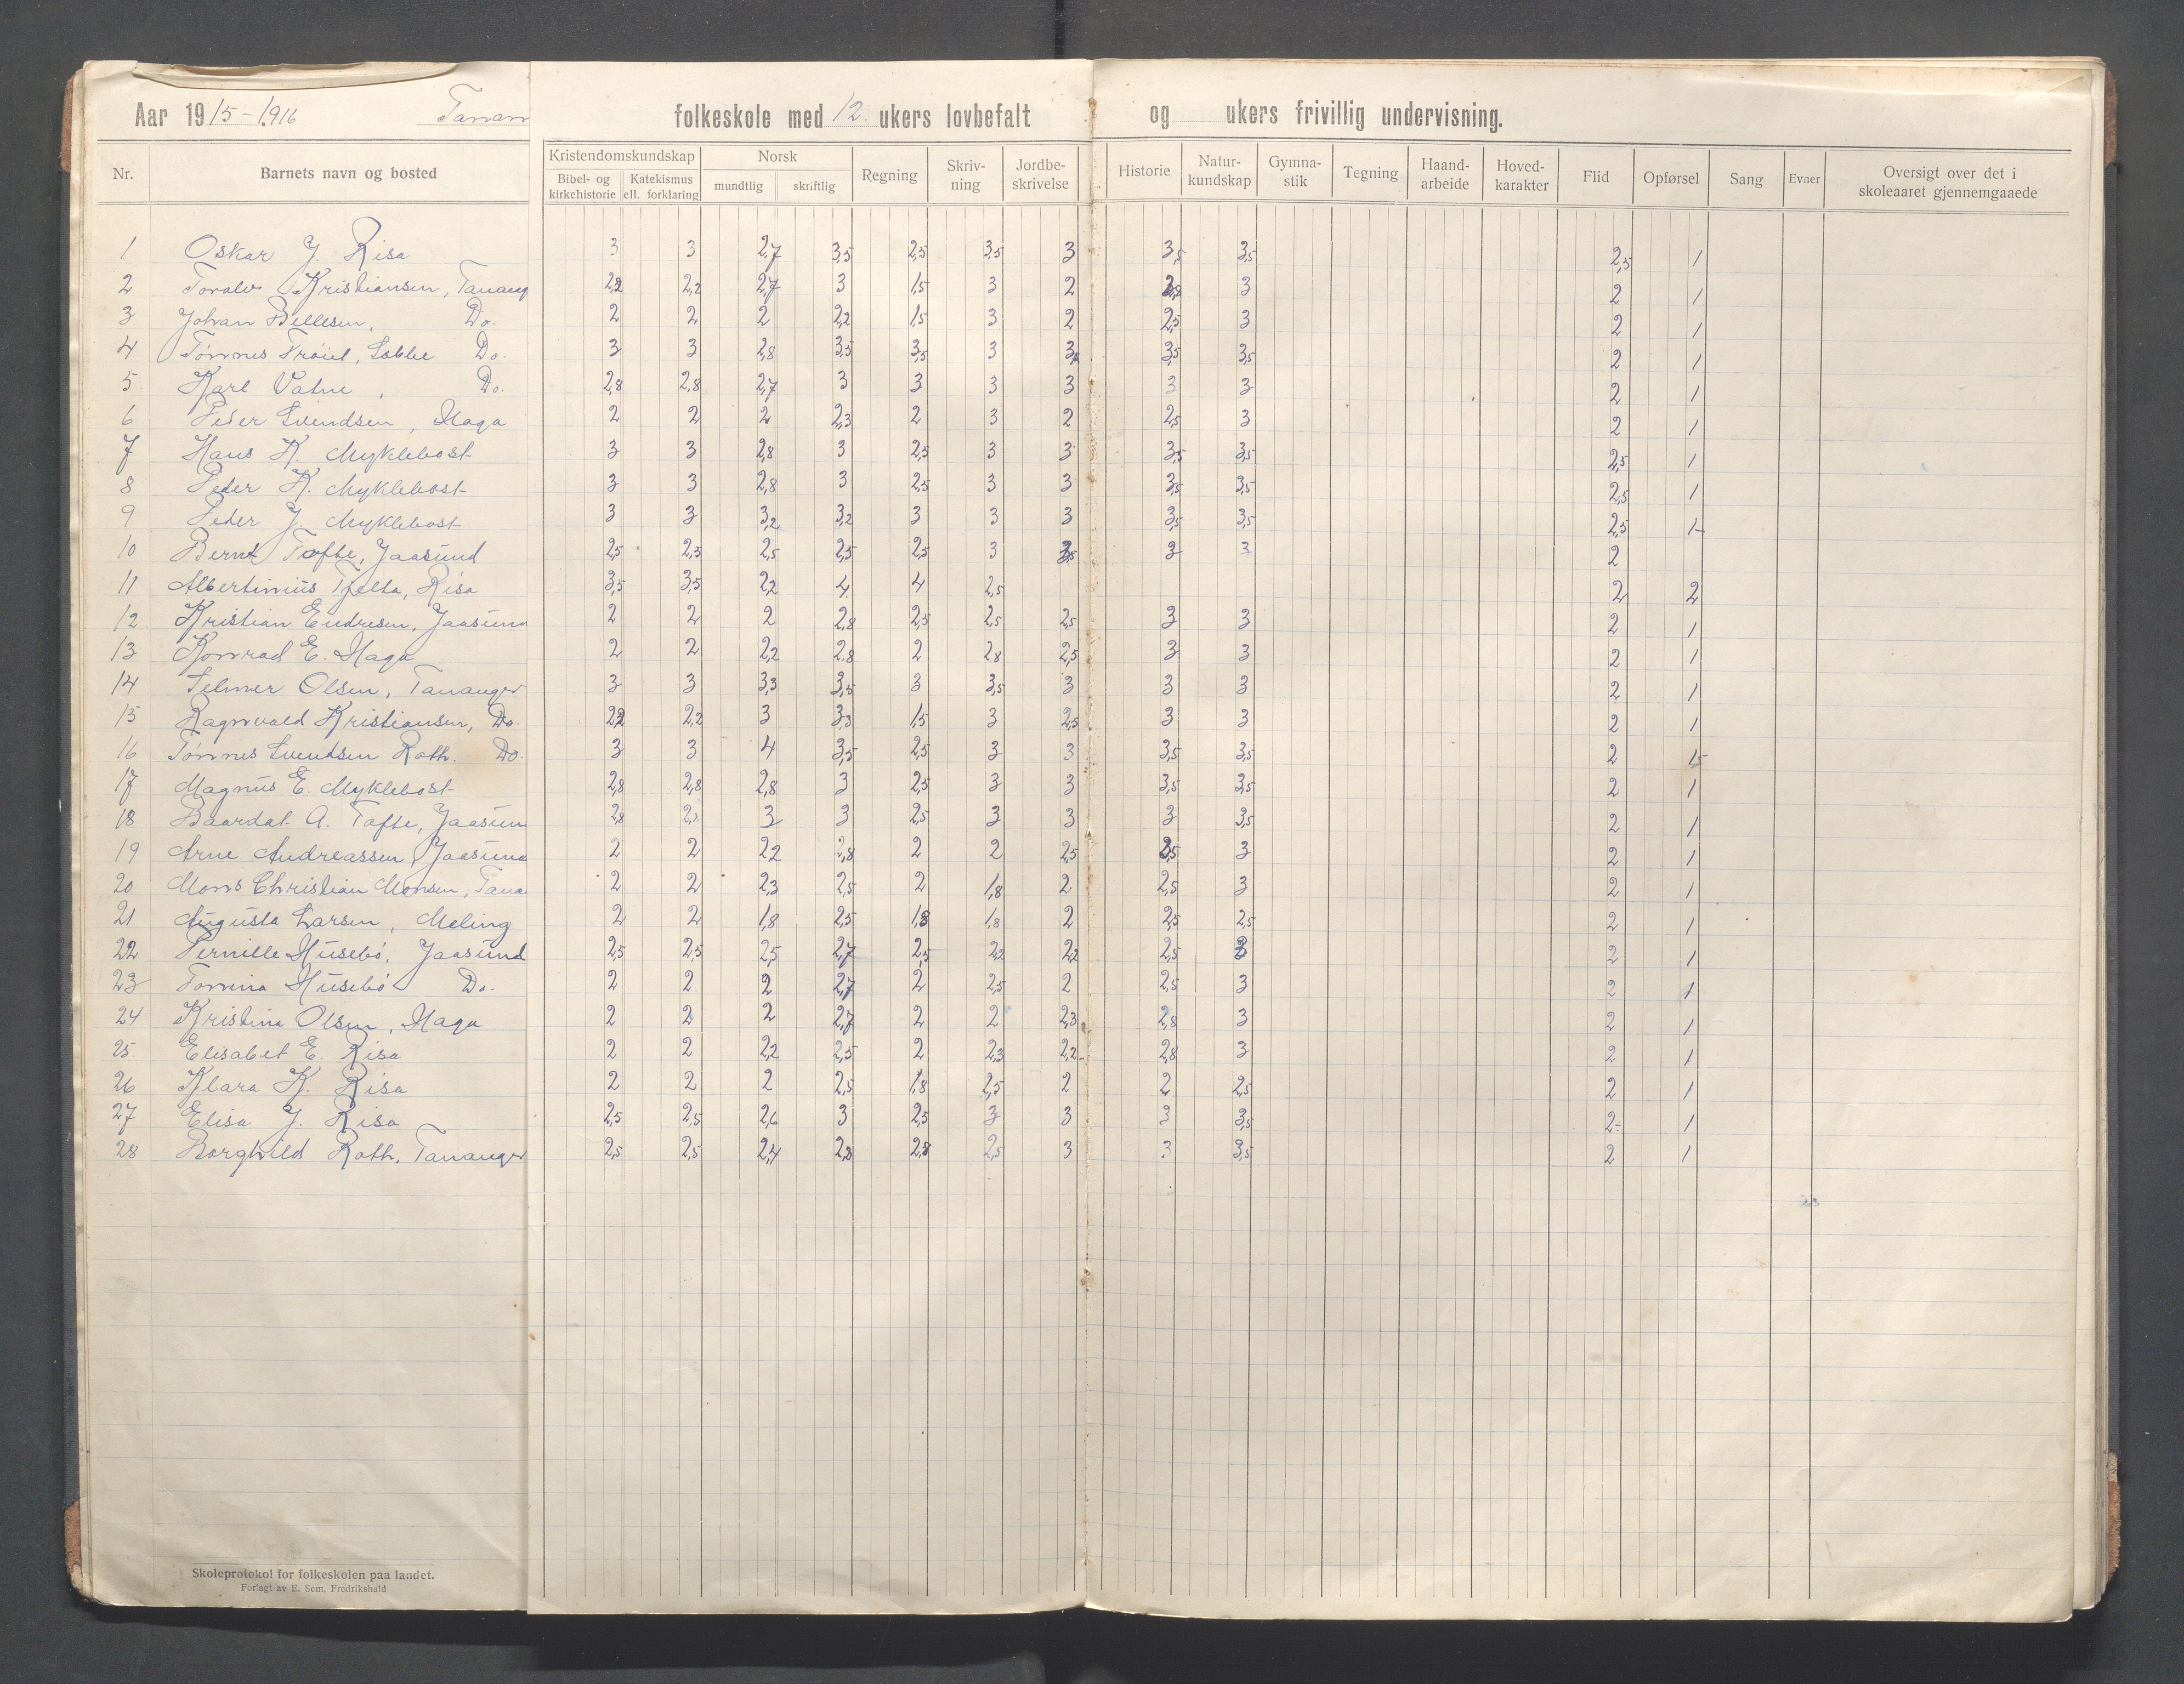 Aar 1915-1916 Tanan folkeskole med 12 ukers lovbefalt og ukers frivillig undervisning.
Nr. Barnets navn og bosted Kristendomskundskap Bibel- og kirkehistorie Katekismus ell. forklaring Norsk mundtlig skriftlig Regning Skriv-ning Jordbe-skrivelse Historie Natur-kundskap Gymna-stik Tegning Haand-arbeide Hoved-karakter Flid Opførsel Sang Evner Oversigt over det i skoleaaret gjennemgaaede
1 Oskar J. Risa 3 3 2,7 3,5 2,5 3,5 3 3,5 3,5 2,5 1
2 Toralv Kristiansen, Tanang 2,2 2,2 2,7 3 1,5 3 2 2,8 3 2 1
3 Johan Bellesen, Do. 2 2 2 2,2 1,5 3 2 2,5 3 2 1
4 Tønnes Trøiel, Do. 3 3 2,8 3,5 3,5 3 3,5 3,5 3,5 2 1
5 Karl Vatne, Do. 2,8 2,8 2,7 3 3 3 3 3 3 2 1
6 Peder Svendsen, Haga 2 2 2 2,3 2 3 2 2,5 3 2 1
7 Hans K. Myklebost 3 3 2,8 3 2,5 3 3 3,5 3,5 2,5 1
8 Peder K. Myklebost 3 3 2,8 3 2,5 3 3 3,5 3,5 2,5 1
9 Peder J. Myklebost 3 3 3,2 3,2 3 3 3 3,5 3,5 2,5 1-
10 Bernt Tofte, Jaasund 2,5 2,5 2,5 2,5 2,5 3 3,5 3 3 2
11 Albertinius Tjelta, Risa 3,5 3,5 2,2 4 4 2,5 2 2
12 Kristian Endresen, Jaasund 2 2 2 2,8 2,5 2,5 2,5 3 3 2 1
13 Konrad E. Haga 2 2 2,2 2,8 2 2,8 2,5 3 3 2 1
14 Selmer Olsen, Tananger 3 3 3,3 3,5 3 3,5 3 3 3 2 1
15 Ragnvald Kristiansen, Do. 2,2 2,2 3 3,3 1,5 3 2,5 3 3 2 1
16 Tønnes Svendsen Roth. Do. 3 3 4 3,5 2,5 3 3 3,5 3,5 2 1,5
17 Magnus E. Myklebost 2,8 2,8 2,8 3 2,5 3 3 3,5 3,5 2 1
18 Baardat A. Tofte, Jaasun 2,8 2,8 3 3 2,5 3 3 3 3,5 2 1
19 Arne Andreassen, Jaasund 2 2 2,2 2,8 2 2 2,5 2,5 3 2 1
20 Mons Christian Monsen, Tana 2 2 2,3 2,5 2 1,8 2 2,5 3 2 1
21 Augusta Larsen, Meling 2 2 1,8 2,5 1,8 1,8 2 2,5 2,5 2 1
22 Pernille Husebø, Jaasund 2,5 2,5 2,5 2,7 2,5 2,2 2,2 2,5 3 2 1
23 Tomina Husebø Do. 2 2 2 2,7 2 2,5 2 2,5 3 2 1
24 Kristina Olsen, Haga 2 2 2 2,7 2 2 2,3 2,8 3 2 1
25 Elisabet E. Risa 2 2 2,2 2,5 2 2,3 2,2 2,8 3 2 1
26 Klara K. Risa 2 2 2 2,5 1,8 2,5 2 2 2,5 2 1
27 Elisa J. Risa 2,5 2,5 2,6 3 2,5 3 3 3 3,5 2- 1
28 Borghild Roth, Tananger 2,5 2,5 2,4 2,8 2,8 2,5 3 3 3,5 2 1
Skoleprotokol for folkeskolen paa landet.
Forlagt av E. Sem, Fredrikshald